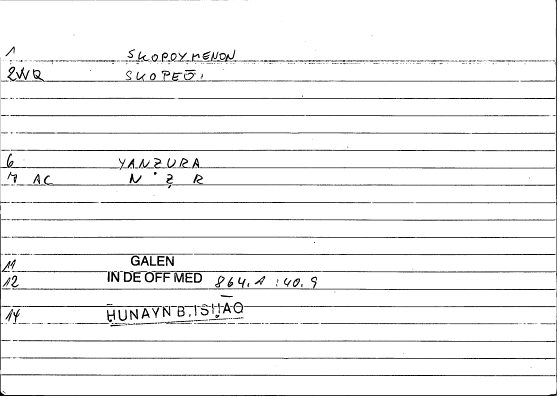 1 SKOPOYMENON
2WQ SKOPEŌ.
6 YANẒURA
7 AC N Ẓ R
11 GALEN
12 IN DE OFF MED 864.1:40.9
14 ḤUNAYN B. ISḤĀQ